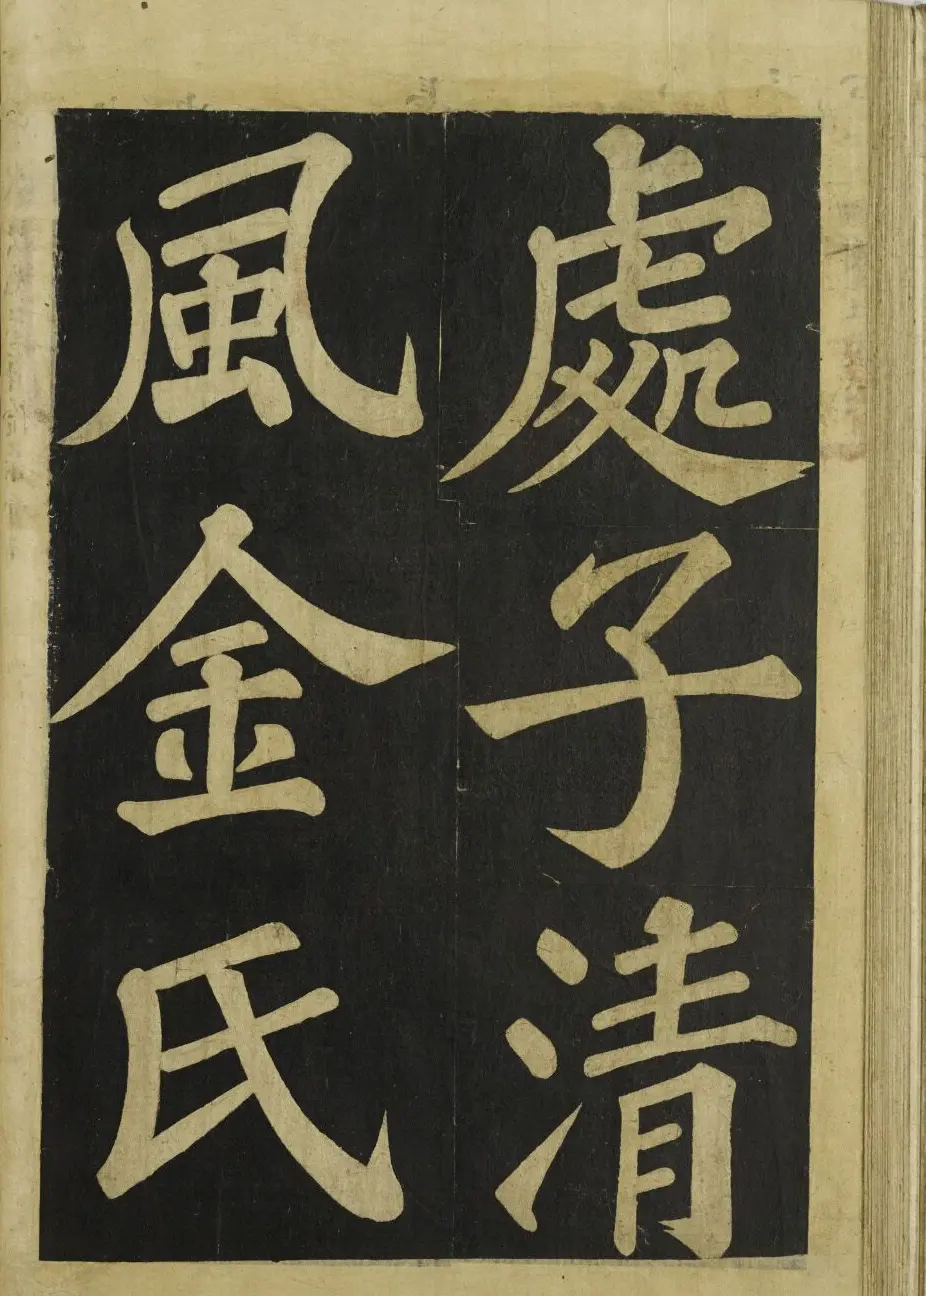 處子清
風金氏